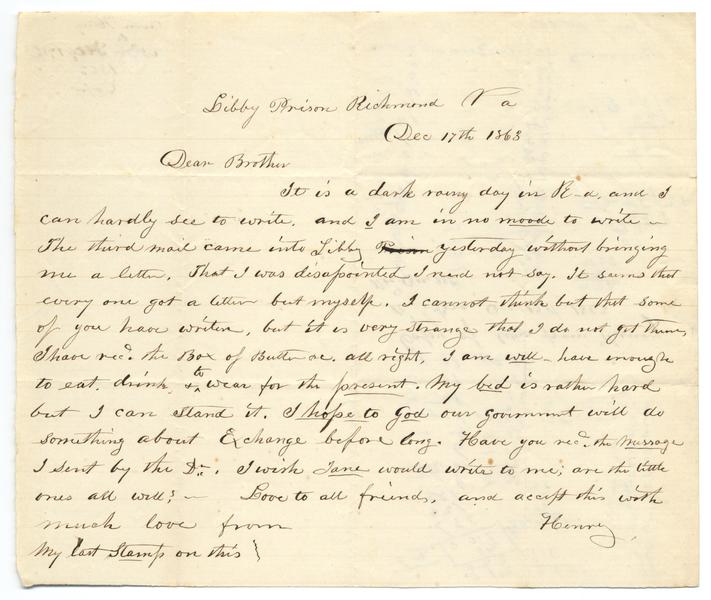 Libby Prison Richmond Va
Dec 17th 1863
Dear Brother
It is a dark rainy day in R-d, and I
can hardly see to write, and I am in no moode to write –
The third mail came into Libby Prison yesterday without bringing
me a letter, That I was disapointed I need not say. It seems that
every one got a letter but myself. I cannot think but that some
of you have writen, but it is very strange that I do not get them,
I have recd. the Box of Butter &c. all right, I am well – have enough
to eat, drink, & to wear for the present. My bed is rather hard
but I can stand it. I hope to God our government will do
something about Exchange before long. Have you recd. the massage
I sent by the Dr. I wish Jane would write to me; are the little
ones all well? – Love to all friends, and accept this with
much love from Henry
My last Stamp on this